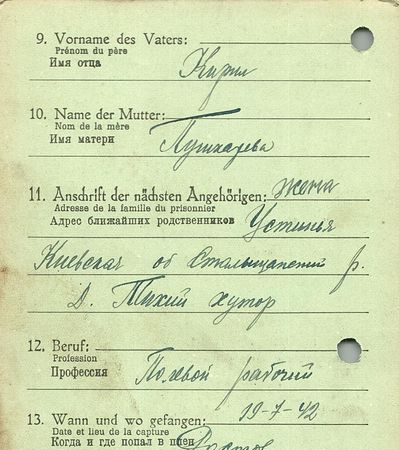 9. Vorname des Vaters:
Prénom du père
Имя отца
Кирил
10. Name der Mutter:
Nom de la mère
Имя матери
Пушкарева
11. Anschrift der nächsten Angehörigen: жена
Adresse de la famille du prisonnier
Адрес ближайших родственников Устинья
Киевская об р.
Д. Тихий хутор
12. Beruf:
Profession
Профессия
Полевой рабочий
13. Wann und wo gefangen: 19-7-42
Date et lieu de la capture
Когда и где попал в плен